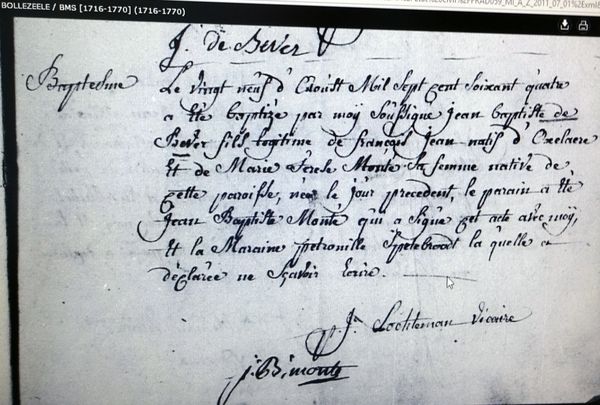 BOLLEZEELE / BMS [1716-1770] (1716-1770)
J. de Bever
Baptesme
Le vingt neuf d'Aoust Mil Sept cent soixant quatre
a été baptize par moy Soussigne jean baptiste de
Bever fils legitime de françois jean natif d'Oxelaere
et de Marie Terese Monte sa femme native de
cette paroisse, née le jour precedent, le parain a été
jean Baptiste Monté qui a signe cet acte avec moy,
et la Maraine petronille la quelle a
déclarée ne sçavoir écrire.
Lochteman vicaire
j: B: monte